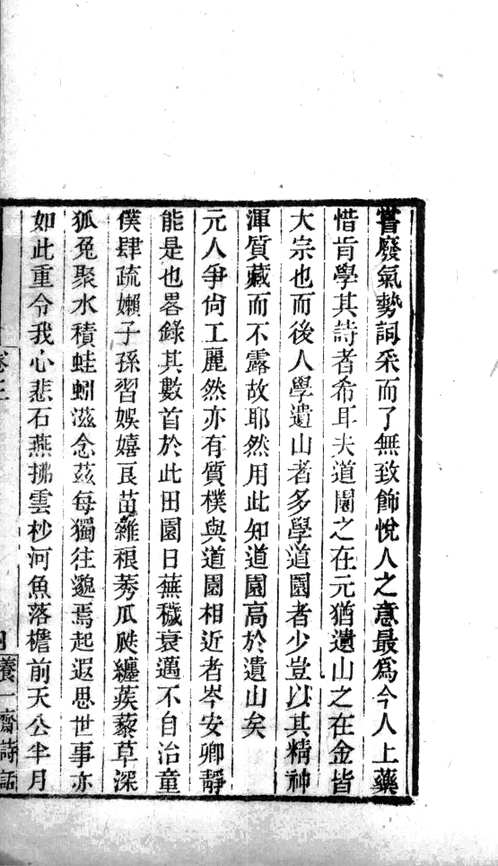 嘗廢氣勢詞采而了無致飾悅人之意最爲今人上藥
惜肯學其詩者希耳夫道園之在元猶遺山之在金皆
大宗也而後人學遺山者多學道園者少豈以其精神
渾質藏而不露故耶然用此知道園高於遺山矣
元人爭尙工麗然亦有質樸與道園相近者岑安卿靜
能是也畧錄其數首於此田園日蕪穢衰邁不自治童
僕肆疏嬾子孫習娛嬉良苗雜稂莠瓜瓞纏蒺藜草深
狐兔聚水積蛙蚓滋念茲每獨往邈焉起遐思世事亦
如此重令我心悲石燕拂雲杪河魚落檐前天公半月
卷三
養一齋詩話